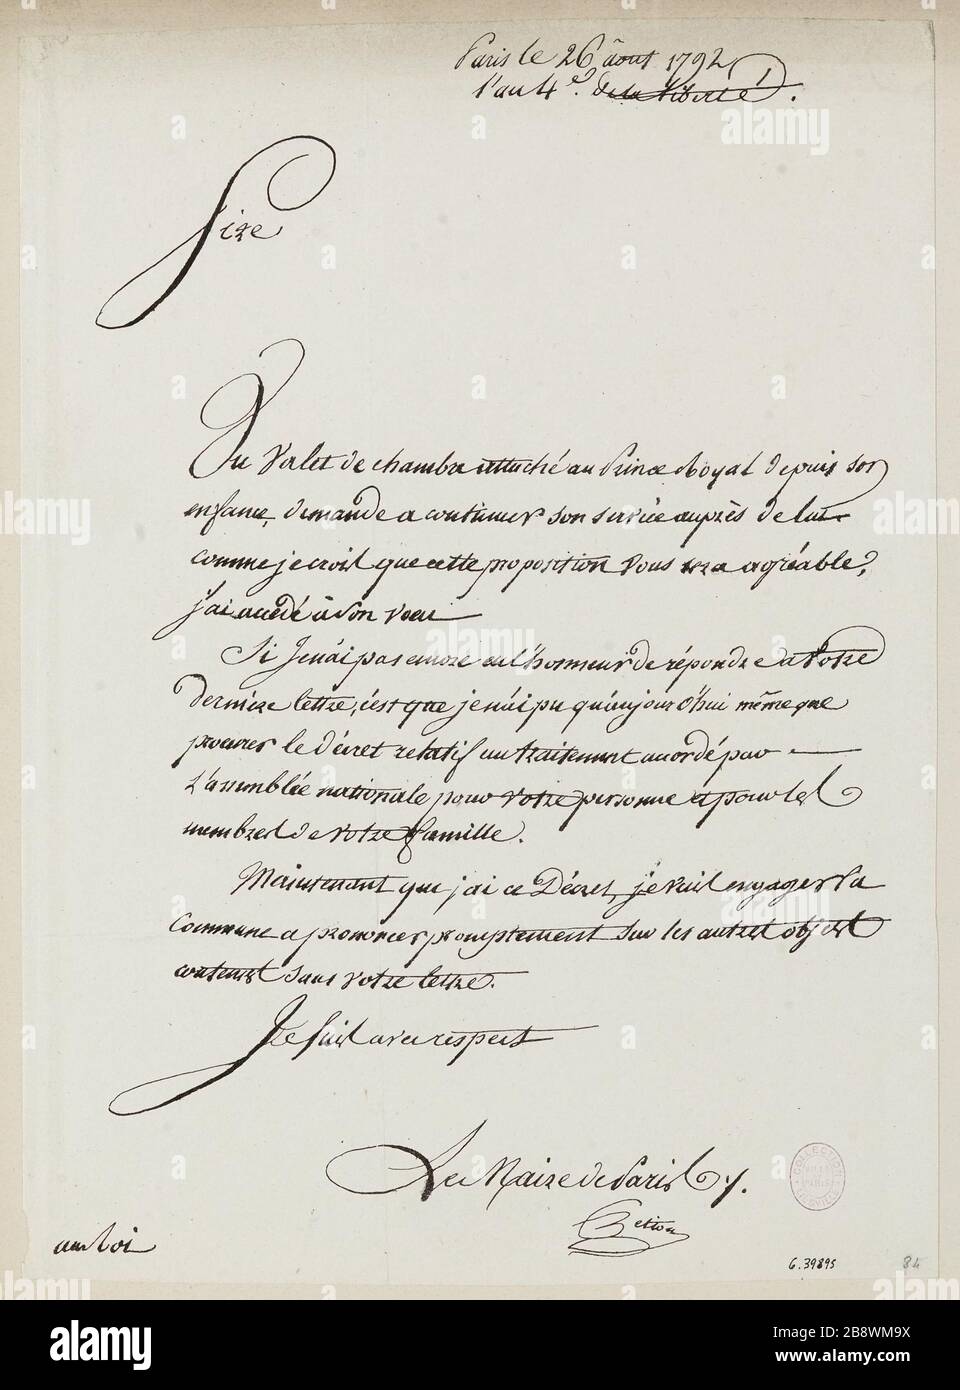 Paris le 26 août 1792
l'an 4e. de la Liberté.
Sire
Un Valet de chambre attaché au Prince Royal depuis son
enfance, demande a continuer son service auprès de lui
comme je crois que cette proposition Vous sera agréable,
j'ai accedé à son voeu
Si Je n'ai pas encore eu l'honneur de répondre a Votre
derniere lettre, c'est que je n'ai pu qu'aujourd'hui même que
procurer le décret relatif au traitement accordé par
L'assemblée nationale pour votre personne et pour les
membres de votre famille.
Maintenant que j'ai ce Décret, je vais engager la
Commune a prononcer promptement sur les autres objets
contenus dans votre lettre.
Je suis avec respect
Le Maire de Paris
Petion
au Roi
COLLECTION
G.39895
84
alamy
Image ID: 2B8WM9X
www.alamy.com